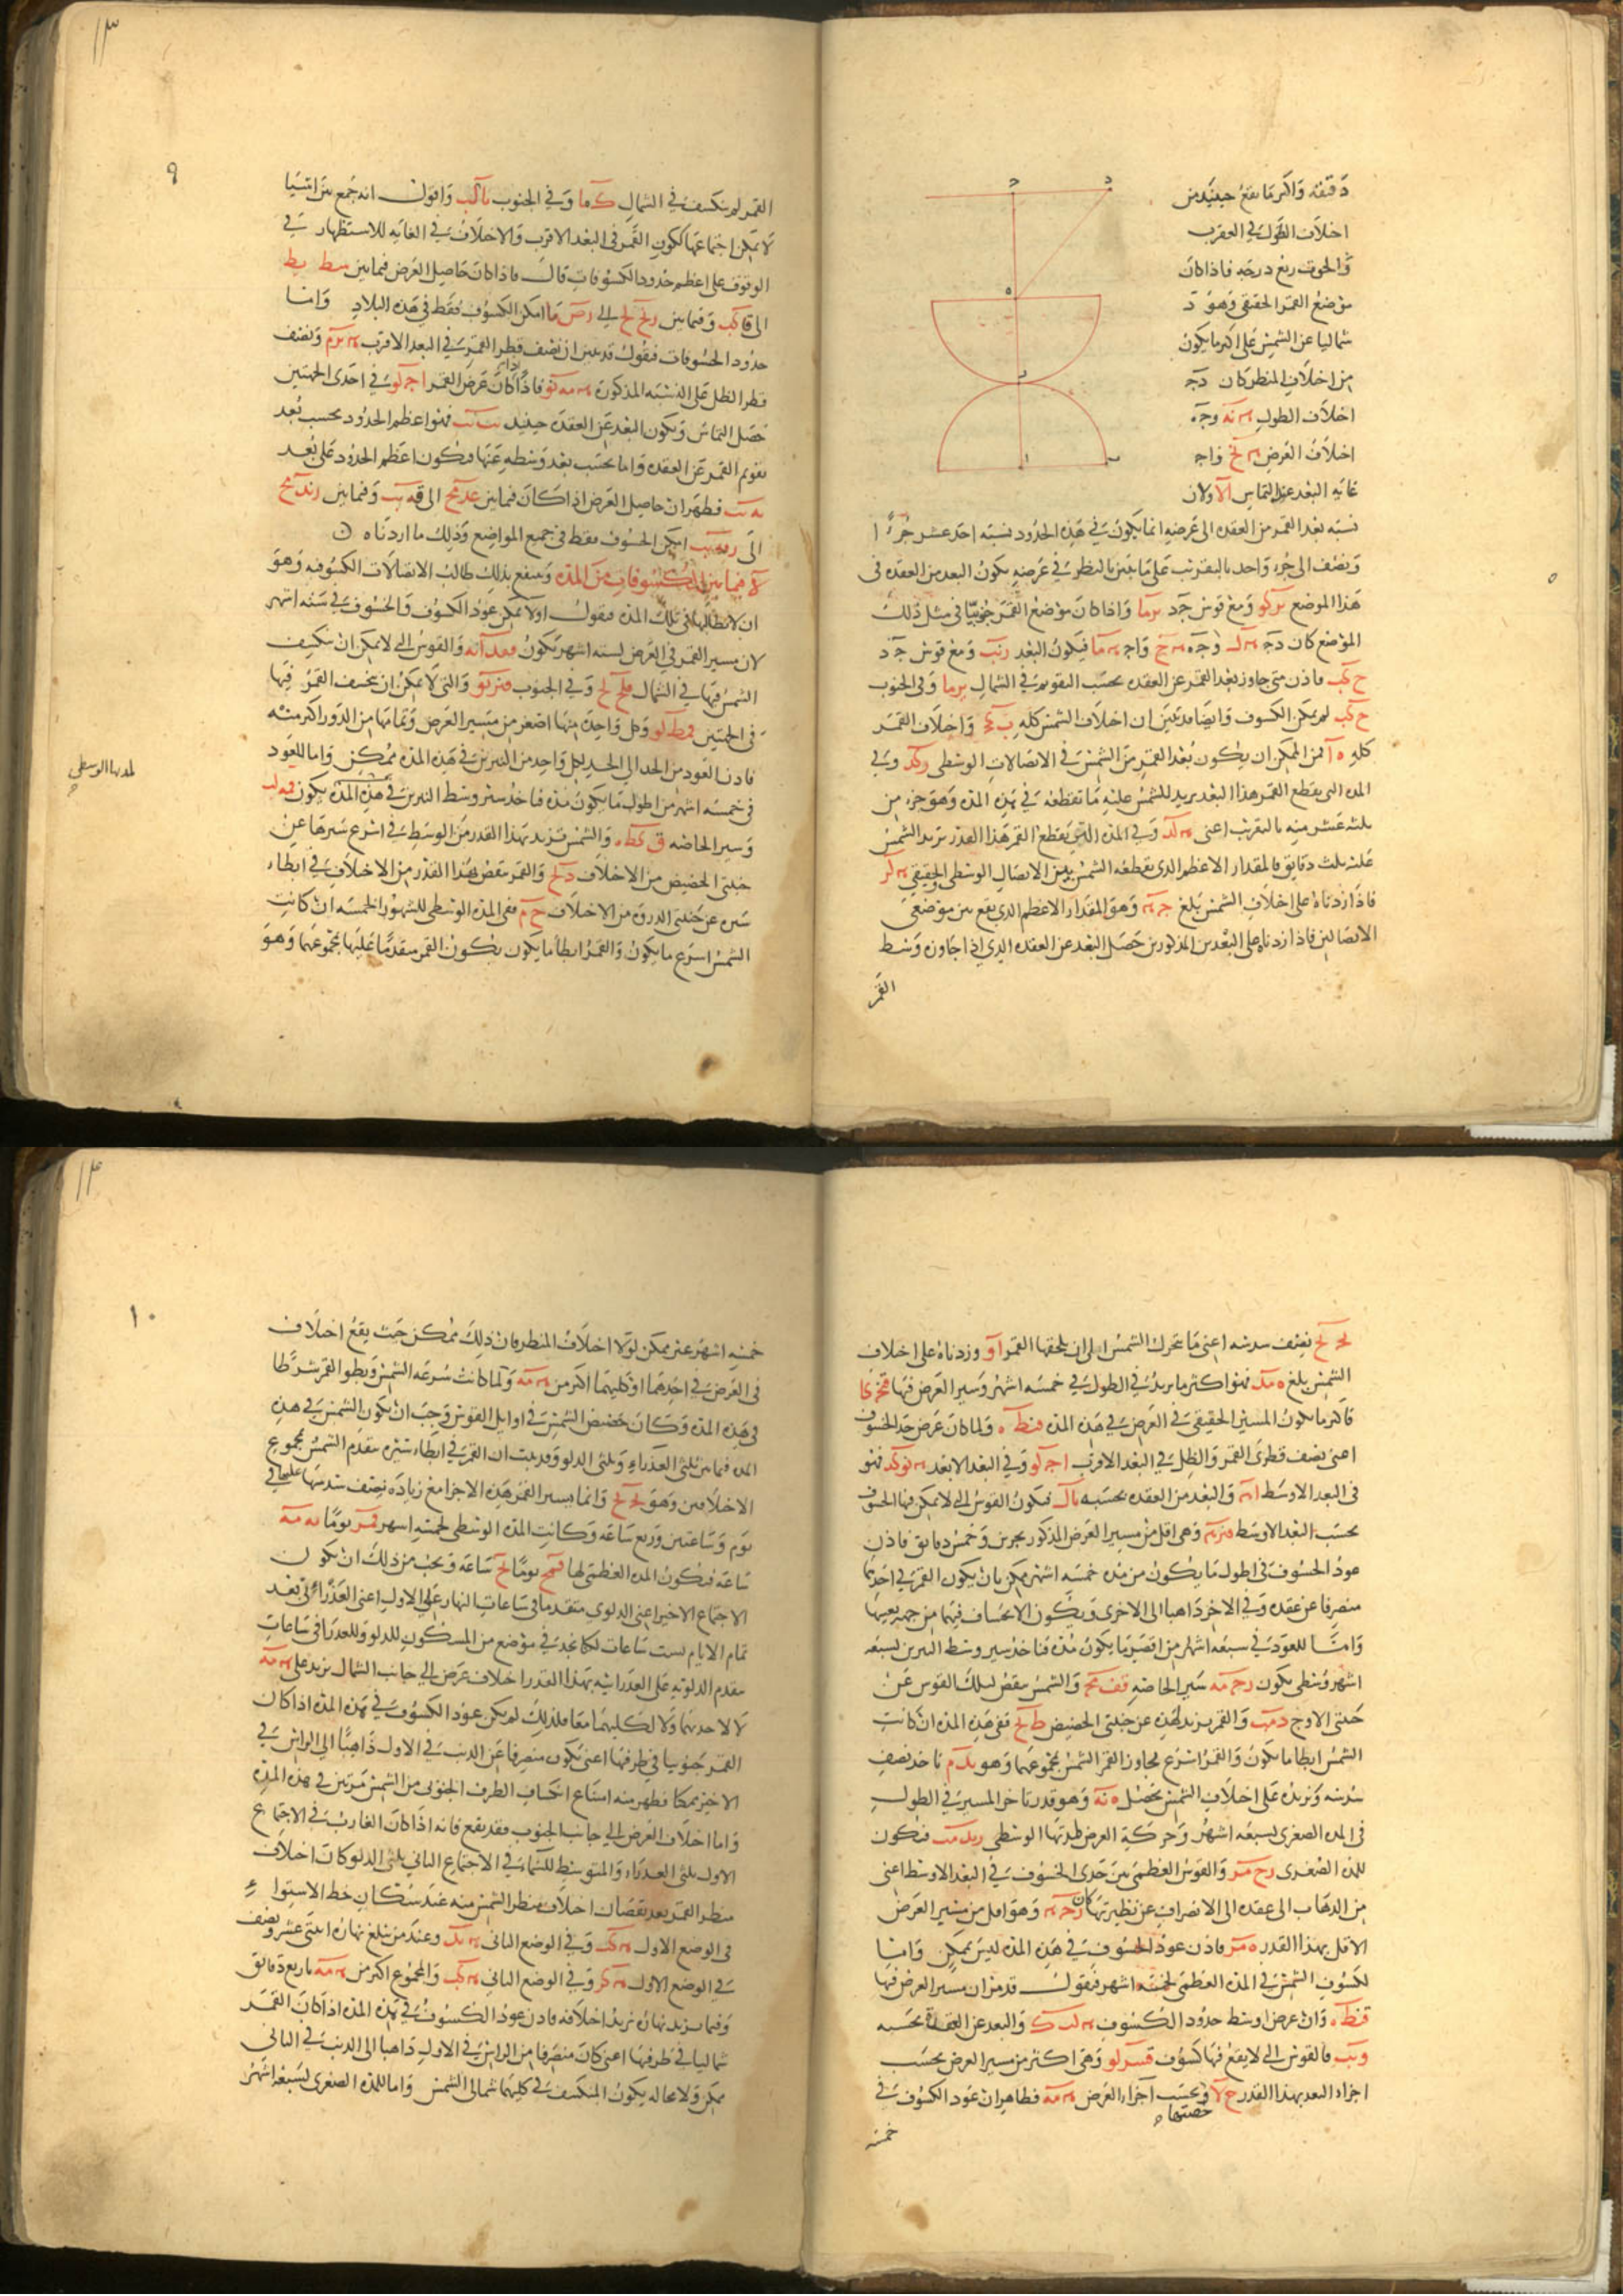 دقيقة واكثر ما يقع حينئذ من
اختلاف الطول في العقرب
والحوت ربع درجة فاذا كان
موضع القمر الحقيقي وهو د
شماليا عن الشمس على اكثر ما يكون
من اختلاف المنظر كان دج
اختلاف الطول ه يه وجه
اختلاف العرض وا ج
غاية البعد عند التماس ولان
نسبة بعد القمر من العقدة الى عرضه انما يكون في هذه الحدود نسبة احد عشر جزءا
ونصف الى جزء واحد بالتقريب على ما تبين بالنظر في عرضه يكون البعد من العقدة في
هذا الموضع ومع قوس جد واذا كان موضع القمر جنوبيا في مثل ذلك
الموضع كان دج وجه واج فيكون البعد ومع قوس جد
ح كب فاذن متى جاوز بعد القمر عن العقدة بحسب التقويم في الشمال يز ما وفي الجنوب
ح كب لم يمكن الكسوف وايضا قد تبين ان اختلاف الشمس كله ب كج واختلاف القمر
كله ه ا فمن الممكن ان يكون بعد القمر من الشمس في الاتصالات الوسطى ز كد وفي
المدة التي يقطع القمر هذا البعد يزيد للشمس عليه ما تقطعه في هذه المدة وهو جزء من
ثلثة عشر منه بالتقريب اعني ه لد وفي المدة التي يقطع القمر هذا القدر تزيد الشمس
ثلث دقايق فالمقدار الاعظم الذي يقطعه الشمس بين الاتصال الوسطى والحقيقي ه لز
فاذا زدناه على اختلاف الشمس بلغ ج ه وهو المقدار الاعظم الذي يقع بين موضعي
الاتصالين فاذا زدناه على البعدين المذكورين حصل البعد عن العقدة الذي اذا جاوزه وسط
القمر
١٣
٩
القمر لم ينكسف في الشمال ك ما وفي الجنوب يا كب واقول انه جمع بين اشيا
لا يمكن اجتماعها ككون القمر في البعد الاقرب والاختلاف في الغاية للاستظهار في
الوقوف على اعظم حدود الكسوفات قال فاذا كان حاصل العرض فيما بين سط يط
الى قا كب وفيما بين رنح لح الى رص ما امكن الكسوف فقط في هذه البلاد واما
حدود الخسوفات فنقول قد تبين ان نصف قطر القمر في البعد الاقرب ونصف
قطر الظل على النسبة المذكورة ه مه نو فاذا كان عرض القمر ا ج لو في احدى الجهتين
حصل التماس ويكون البعد عن العقدة حينئذ يب يب فهو اعظم الحدود بحسب بعد
تقويم القمر عن العقدة واما بحسب بعد وسطه عنها فيكون اعظم الحدود على بعد
يه يب فظهر ان حاصل العرض اذا كان فيما بين عد مح الى قه يب وفيما بين رند مح
الى امكن الخسوف فقط في جميع المواضع وذلك ما اردناه
فيما بين الكسوفات من المدة وينتفع بذلك طالب الاتصالات الكسوفية وهو
ان لا يطالبها في تلك المدة فنقول اولا يمكن عود الكسوف والخسوف في ستة اشهر
لان مسير القمر في العرض لستة اشهر يكون والقوس التي لا يمكن ان ينكسف
الشمس فيها في الشمال قلح لح وفي الجنوب والتي لا يمكن ان ينخسف القمر فيها
في الجهتين قمط لو وكل واحدة منها اصغر من مسير العرض وتمامها من الدور اكبر منه
فاذن العود من الحد الى الحد لكل واحد من النيرين في هذه المدة ممكن واما للعود
في خمسة اشهر من اطول ما يكون مدة فناخذ سير وسط النيرين في هذه المدة يكون قمه لب
لمدتها الوسطى
وسير الخاصة ق كط والشمس تزيد بهذا القدر من الوسط في اسرع سيرها عن
جنبتي الحضيض من الاختلاف د لح والقمر ينقص بهذا القدر من الاختلاف في ابطاء
سيره عن جنبتي الذروة من الاختلاف ح م ففي المدة الوسطى للشهور الخمسة ان كانت
الشمس اسرع ما يكون والقمر ابطأ ما يكون يكون القمر متقدما عليها بمجموعهما وهو
يج يح نصف سدسه اعني ما تحرك الشمس الى ان يلحقها القمر ا و وزدناه على اختلاف
الشمس بلغ ه مد فهو اكثر ما يزيد في الطول في خمسة اشهر وسير العرض فيها
فاكثر ما يكون المسير الحقيقي في العرض في هذه المدة قنط ه ولما كان عرض حد الخسوف
اعني نصف قطري القمر والظل في البعد الاقرب ا ج لو وفي البعد الابعد ه نو كد فهو
في البعد الاوسط ا ه والبعد من العقدة بحسبه يا ل فيكون القوس التي لا يمكن فيها الخسوف
بحسب البعد الاوسط قنز ه وهي اقل من مسير العرض المذكور بجزين وخمس دقايق فاذن
عود الخسوف في اطول ما يكون من مدة خمسة اشهر ممكن بان يكون القمر في احديهما
منصرفا عن عقدة وفي الاخرى ذاهبا الى الاخرى ويكون الانخساف فيهما من جهة بعينها
واما للعود في سبعة اشهر من اقصر ما يكون مدة فناخذ سير وسط النيرين لسبعة
اشهر وسطى يكون رج مه وسير الخاصة قف مح والشمس ينقص لتلك القوس عن
جنبتي الاوج د مب والقمر يزيد لهذه عن جنبتي الحضيض ط لح ففي هذه المدة ان كانت
الشمس ابطا ما يكون والقمر اسرع تجاوز القمر الشمس بمجموعهما وهو يد م ناخذ نصف
سدسه ونزيده على اختلاف الشمس يحصل ه نه وهو قدر تاخر المسير في الطول
في المدة الصغرى لسبعة اشهر وحركة العرض لمدتها الوسطى ريد مب فيكون
للمدة الصغرى رح مز والقوس العظمى بين حدي الخسوف في البعد الاوسط اعني
من الذهاب الى عقدة الى الانصراف عن نظيرتها كان رج ه وهو اقل من مسير العرض
الاقل بهذا القدر ه مز فاذن عود الخسوف في هذه المدة ليس بممكن واما
لكسوف الشمس في المدة العظمى لخمسة اشهر فنقول قد مر ان مسير العرض فيها
قنط ه وان عرض اوسط حدود الكسوف ه لب ك والبعد عن العقدة بحسبه
و يب فالقوس التي لا يقع فيها كسوف قسز لو وهي اكثر من مسير العرض بحسب
اجزاء البعد بهذا القدر ح لا وبحسب اجزاء العرض ه مه فظاهر ان عود الكسوف في
حصتها
خمسة
١٤
١٠
خمسة اشهر غير ممكن لولا اختلاف المنظر فان ذلك ممكن حيث يقع اختلاف
في العرض في احدهما او كليهما اكثر من ه مه ولما كانت سرعة الشمس وبطو القمر شرطا
في هذه المدة وكان حضيض الشمس في اوايل القوس وجب ان يكون الشمس في هذه
المدة فيما بين ثلثي العذراء وثلثي الدلو وقد بينت ان القمر في ابطاء سيره يتقدم الشمس بمجموع
الاختلافين وهو يج يح وانما يسير القمر هذه الاجزاء مع زيادة نصف سدسها عليها في
يوم وساعتين وربع ساعة وكانت المدة الوسطى لخمسة اشهر قمز يوما يه مه
ساعة فيكون المدة العظمى لها قمح يوما يح ساعة ويجب من ذلك ان يكون
الاجتماع الاخير اعني الدلوي متقدما في ساعات النهار على الاول اعني العذراوي بعد
تمام الايام لست ساعات لكنا نجد في موضع من المسكون للدلو وللعذرا في ساعات
يتقدم الدلوية على العذرائية بهذا القدر اختلاف عرض الى جانب الشمال يزيد على ه مه
لا لاحديهما ولا لكليهما معا فلذلك لم يكن عود الكسوف في هذه المدة اذا كان
القمر جنوبيا في طرفيها اعني يكون منصرفا عن الذنب في الاول ذاهبا الى الراس في
الاخير ممكنا فظهر منه امتناع انكساف الطرف الجنوبي من الشمس مرتين في هذه المدة
واما اختلاف العرض الى جانب الجنوب فقد يقع فانه اذا كان الغارب في الاجتماع
الاول ثلثي العذراء والمتوسط للسماء في الاجتماع الثاني ثلثي الدلو كان اختلاف
منظر القمر بعد نقصان اختلاف منظر الشمس منه عند سكان خط الاستواء
في الوضع الاول ه كب وفي الوضع الثاني ه يد وعند من يبلغ نهاره اثنتي عشر ونصف
في الوضع الاول ه كز وفي الوضع الثاني ه كب والمجموع اكثر من ه مه باربع دقايق
وفيما يزيد نهاره يزيد اختلافه فاذن عود الكسوف في هذه المدة اذا كان القمر
شماليا في طرفيها اعني كان منصرفا من الراس في الاول ذاهبا الى الذنب في الثاني
ممكن ولا محالة يكون المنكسف في كليهما شمالي الشمس واما للمدة الصغرى لسبعة اشهر